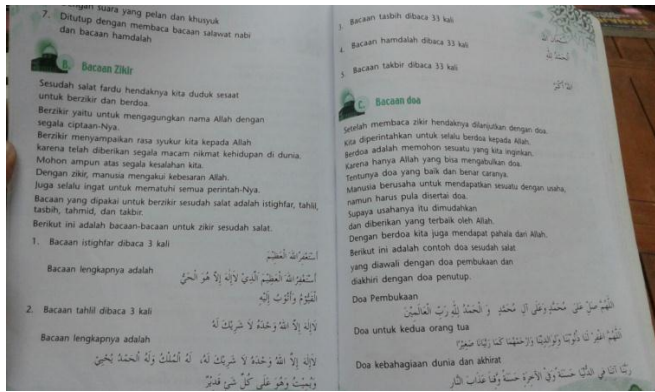 dengan suara yang pelan dan khusyuk
7. Ditutup dengan membaca bacaan salawat nabi
dan bacaan hamdalah
B. Bacaan Zikir
Sesudah salat fardu hendaknya kita duduk sesaat
untuk berzikir dan berdoa.
Berzikir yaitu untuk mengagungkan nama Allah dengan
segala ciptaan-Nya.
Berzikir menyampaikan rasa syukur kita kepada Allah
karena telah diberikan segala macam nikmat kehidupan di dunia.
Mohon ampun atas segala kesalahan kita.
Dengan zikir, manusia mengakui kebesaran Allah.
Juga selalu ingat untuk mematuhi semua perintah-Nya.
Bacaan yang dipakai untuk berzikir sesudah salat adalah istighfar, tahlil,
tasbih, tahmid, dan takbir.
Berikut ini adalah bacaan-bacaan untuk zikir sesudah salat.
1. Bacaan istighfar dibaca 3 kali
أَسْتَغْفِرُ اللهَ الْعَظِيْمَ
Bacaan lengkapnya adalah
أَسْتَغْفِرُ اللهَ الْعَظِيْمَ الَّذِيْ لَاإِلَهَ إِلاَّ هُوَ الْحَيُّ
الْقَيُّوْمُ وَأَتُوْبُ إِلَيْهِ
2. Bacaan tahlil dibaca 3 kali
لَاإِلَهَ إِلاَّ اللهُ وَحْدَهُ لَا شَرِيْكَ لَهُ
Bacaan lengkapnya adalah
لَاإِلَهَ إِلاَّ اللهُ وَحْدَهُ لَا شَرِيْكَ لَهُ، لَهُ الْمُلْكُ وَلَهُ الْحَمْدُ يُحْيِيْ
وَيُمِيْتُ وَهُوَ عَلَى كُلِّ شَيْءٍ قَدِيْرٌ
3. Bacaan tasbih dibaca 33 kali
سُبْحَانَ اللهِ
4. Bacaan hamdalah dibaca 33 kali
الْحَمْدُ لِلهِ
5. Bacaan takbir dibaca 33 kali
اَللهُ أَكْبَرُ
C. Bacaan doa
Setelah membaca zikir hendaknya dilanjutkan dengan doa.
Kita diperintahkan untuk selalu berdoa kepada Allah.
Berdoa adalah memohon sesuatu yang kita inginkan.
Karena hanya Allah yang bisa mengabulkan doa.
Tentunya doa yang baik dan benar caranya.
Manusia berusaha untuk mendapatkan sesuatu dengan usaha,
namun harus pula disertai doa.
Supaya usahanya itu dimudahkan
dan diberikan yang terbaik oleh Allah.
Dengan berdoa kita juga mendapat pahala dari Allah.
Berikut ini adalah contoh doa sesudah salat
yang diawali dengan doa pembukaan dan
diakhiri dengan doa penutup.
Doa Pembukaan
اَللّهُمَّ صَلِّ عَلَى مُحَمَّدٍ وَعَلَى آلِ مُحَمَّدٍ وَ الْحَمْدُ لِلهِ رَبِّ الْعَالَمِيْنَ
Doa untuk kedua orang tua
اَللّهُمَّ اغْفِرْ لَنَا ذُنُوْبَنَا وَلِوَالِدَيْنَا وَارْحَمْهُمَا كَمَا رَبَّيَانَا صَغِيْرًا
Doa kebahagiaan dunia dan akhirat
رَبَّنَا آتِنَا فِي الدُّنْيَا حَسَنَةً وَفِي الْآخِرَةِ حَسَنَةً وَقِنَا عَذَابَ النَّارِ